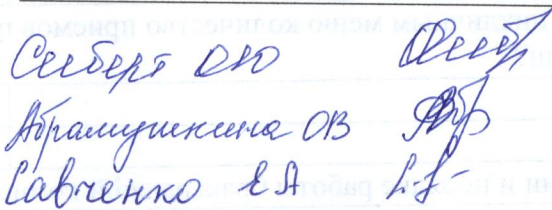 Сиберт ОЮ
Абрамушкина ОВ
Савченко ЕА